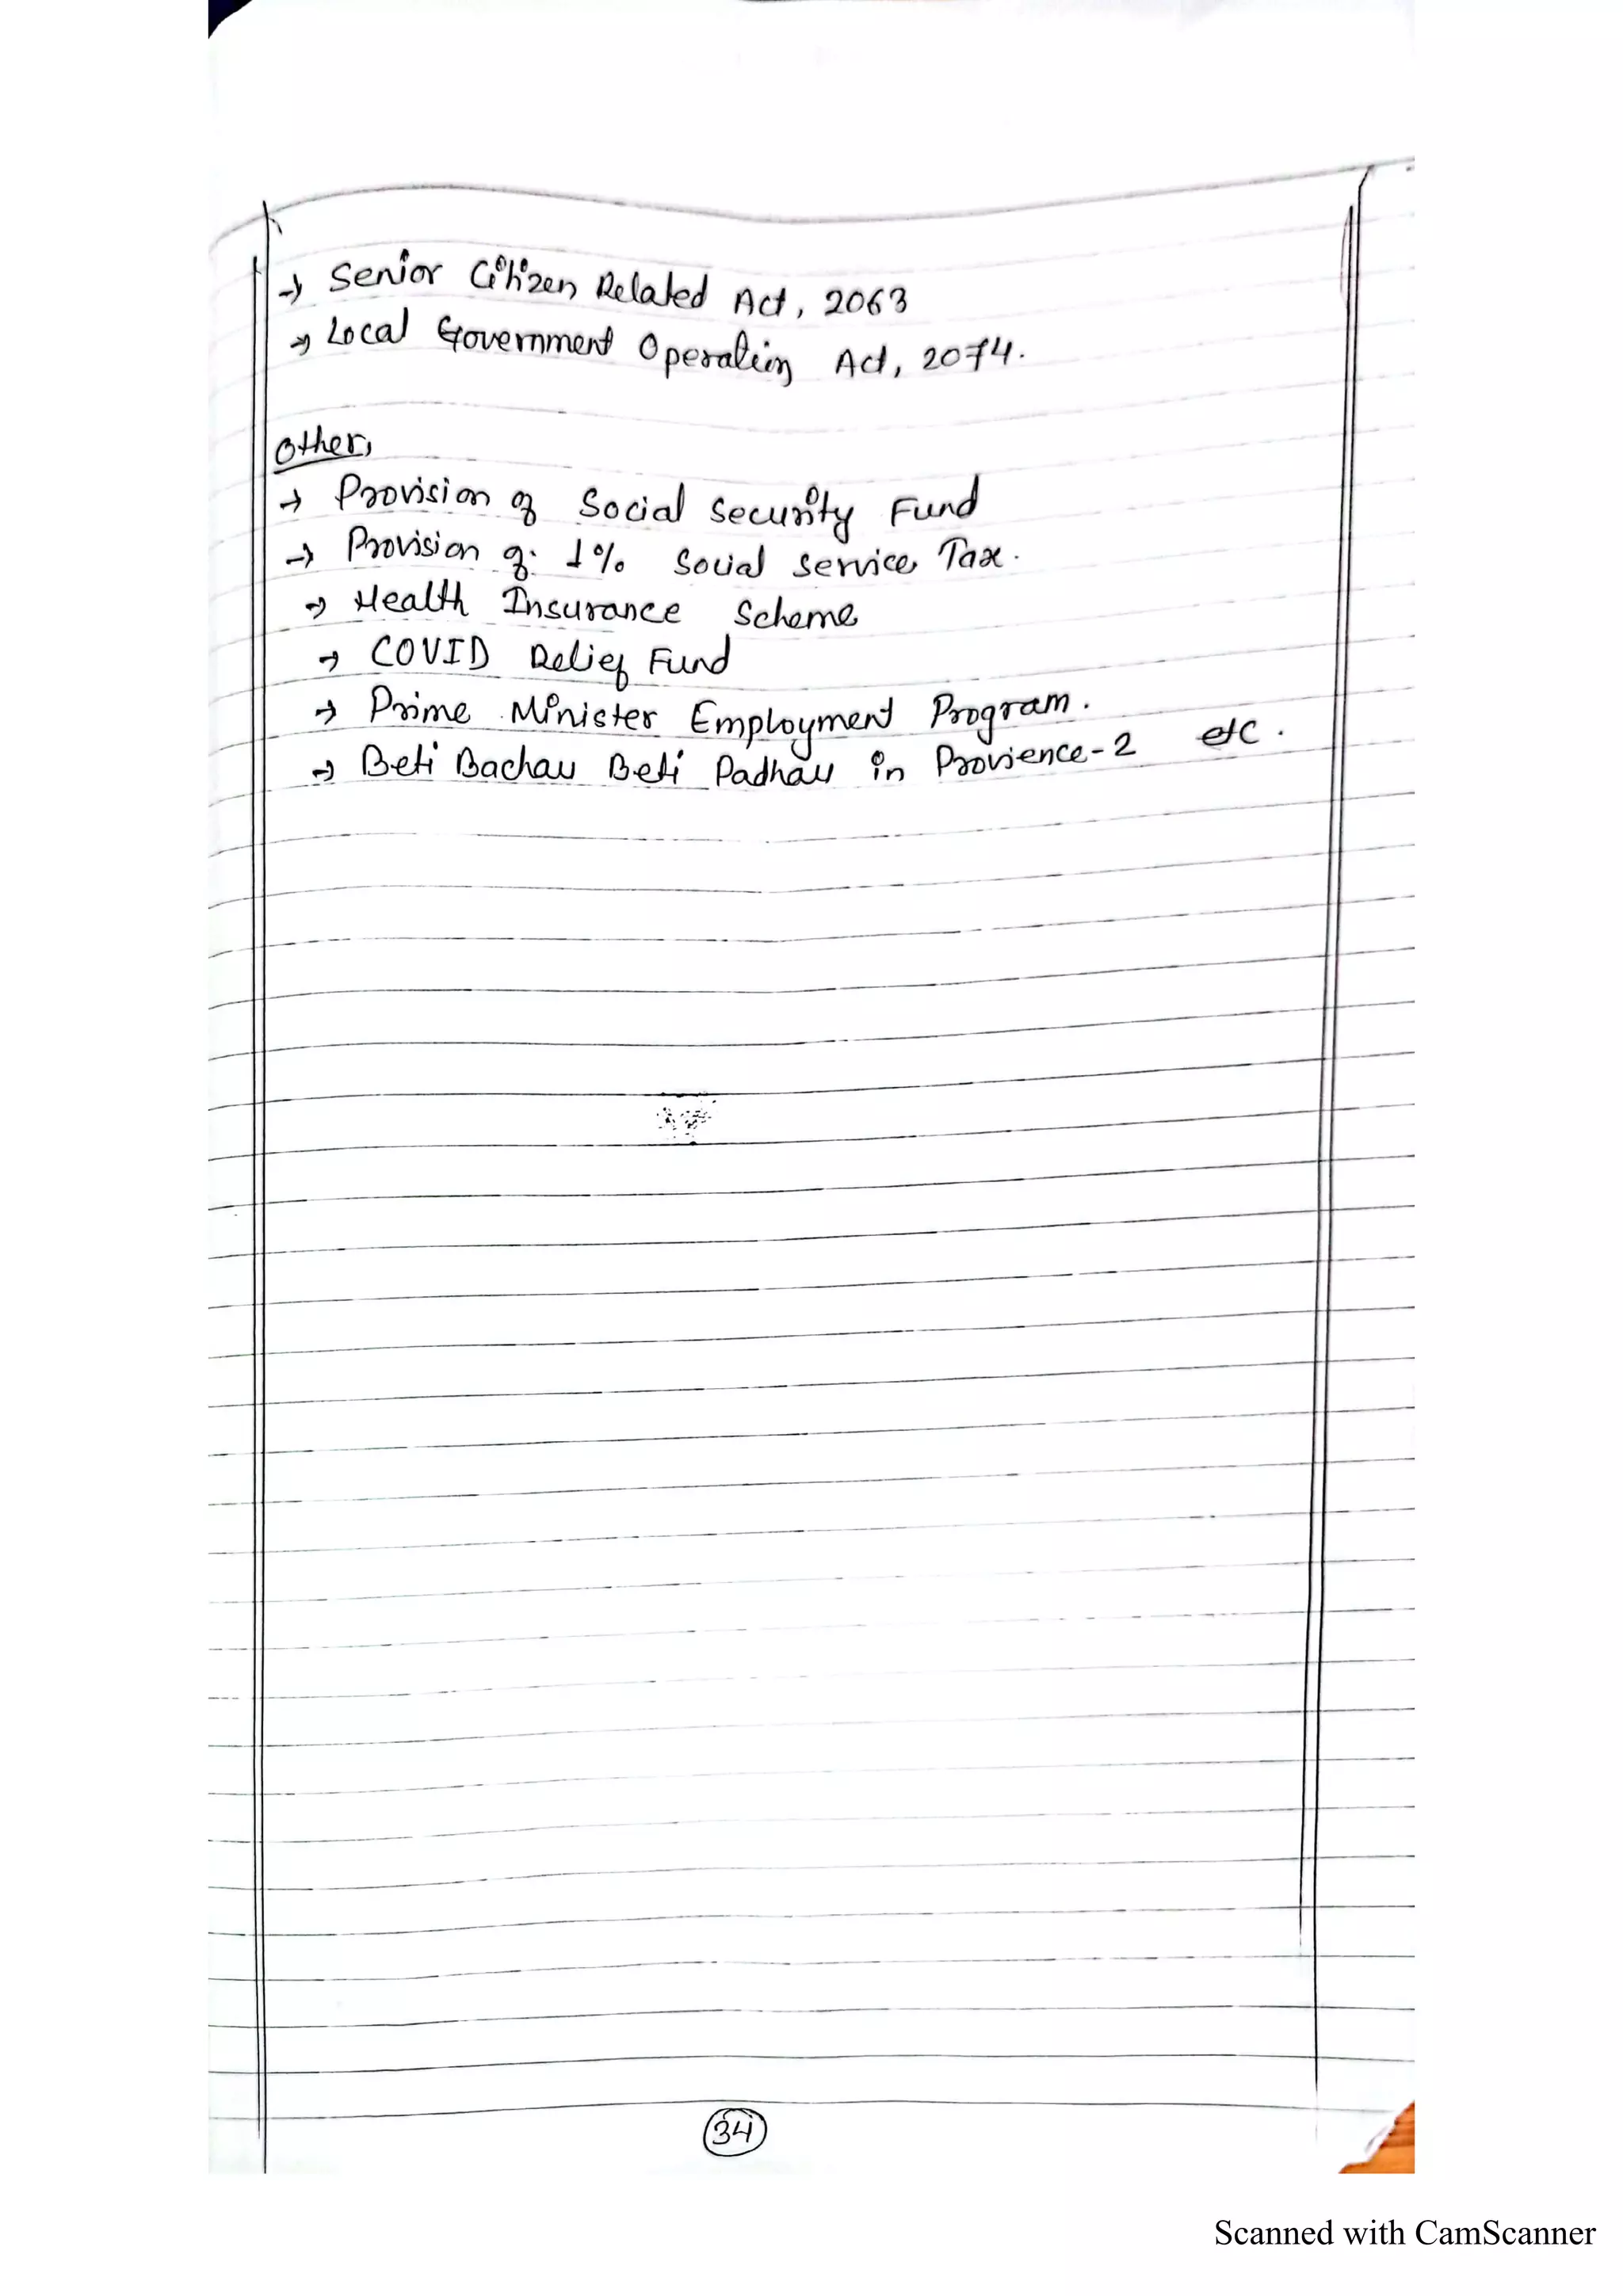 → Senior Citizen Related Act, 2063
→ Local Government Operation Act, 2074.
Other,
→ Provision of Social Security Fund
→ Provision of 1% Social Service Tax.
→ Health Insurance Scheme
→ COVID Relief Fund
→ Prime Minister Employment Program.
→ Beti Bachau Beti Padhau in Provience-2 etc.
34
Scanned with CamScanner